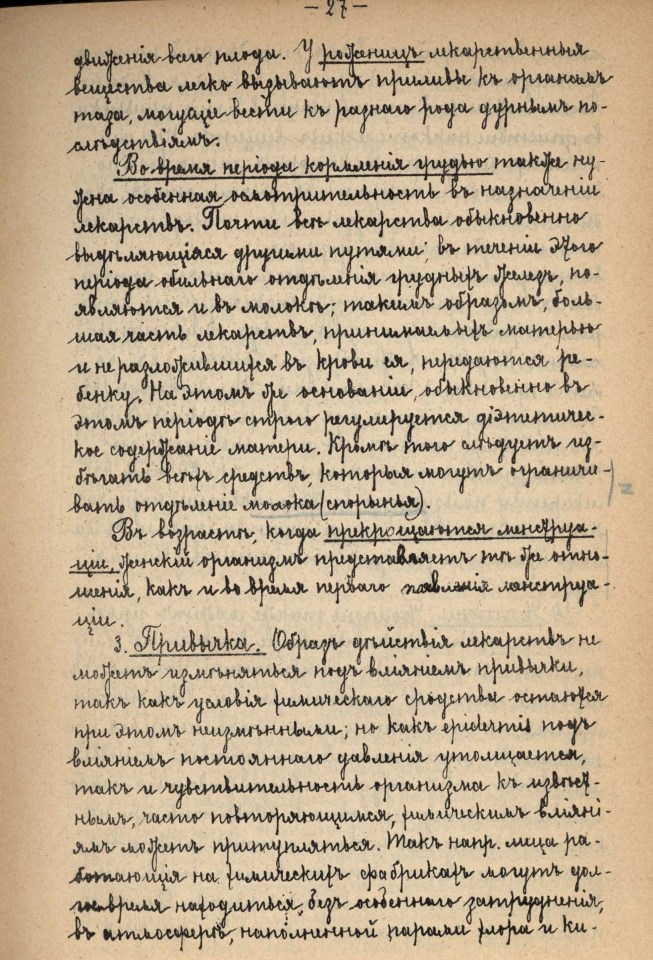 — 27 —
движенія всего плода. У роженицъ лекарственныя
вещества легко вызываютъ приливы къ органамъ
таза, могущіе вести къ разнаго рода дурнымъ по-
слѣдствіямъ.
Во время періода кормленія грудью также ну-
жна особенная осмотрительность въ назначеніи
лекарствъ. Почти всѣ лекарства обыкновенно
выдѣляющіяся другими путями, въ теченіи этого
періода обильнаго отдѣленія грудныхъ железъ, по-
являются и въ молокѣ; такимъ образомъ, боль-
шая часть лекарствъ, принимаемыхъ матерью
и не разложившихся въ крови ея, передаются ре-
бенку. На этомъ же основаніи, обыкновенно въ
этомъ періодѣ строго регулируется діэтетичес-
кое содержаніе матери. Кромѣ того слѣдуетъ из-
бѣгать всѣхъ средствъ, которыя могутъ ограничи-
вать отдѣленіе молока (спорынья).
Въ возрастѣ, когда прекращаются менструа-
ціи, женскій организмъ представляетъ тѣ же отно-
шенія, какъ и во время перваго появленія менструа-
ціи.
3. Привычка. Образъ дѣйствія лекарствъ не
можетъ измѣняться подъ вліяніемъ привычки,
такъ какъ условія химическаго сродства остаются
при этомъ неизмѣнными; но какъ epidermis подъ
вліяніемъ постояннаго давленія утолщается,
такъ и чувствительность организма къ извѣст-
нымъ, часто повторяющимся, химическимъ вліяні-
ямъ можетъ притупляться. Такъ напр. лица ра-
ботающія на химическихъ фабрикахъ могутъ дол-
гое время находиться, безъ особеннаго затрудненія,
въ атмосферѣ, наполненной парами хлора и ки-